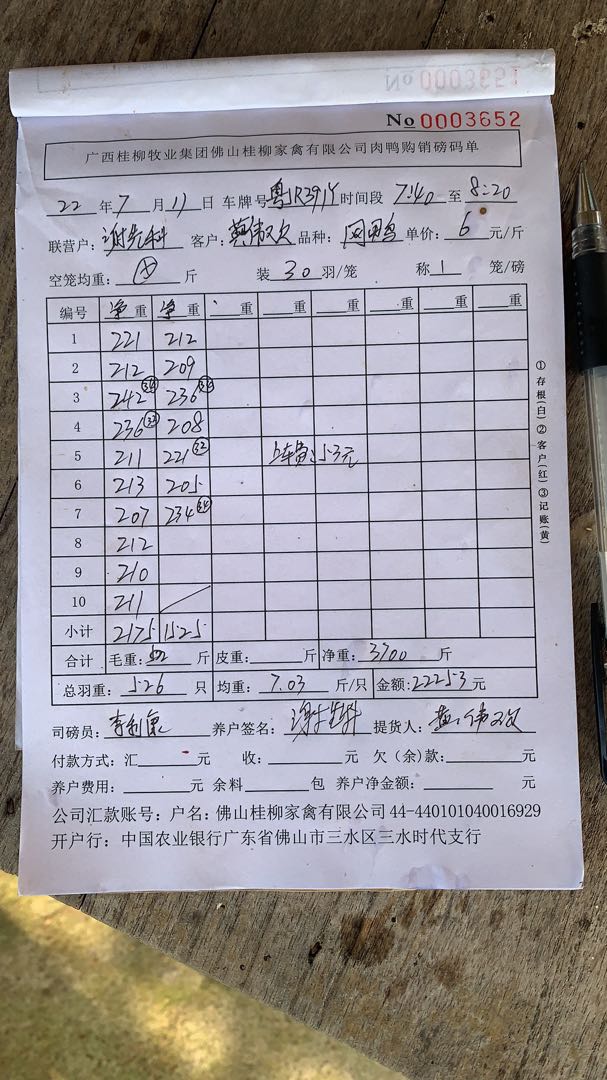 No 0003651
No 0003652
广西桂柳牧业集团佛山桂柳家禽有限公司肉鸭购销磅码单
22 年 7 月 11 日 车牌号 粤JR391Y 时间段 7:40 至 8:20
联营户: 谢 客户: 伟 品种: 单价: 6 元/斤
空笼均重: 斤 装 30 羽/笼 称 1 笼/磅
编号 净重 净重 重 重 重 重 重 重
1 221 212
2 212 209
3 242 236
4 236 208
5 211 221 上车费:53元
6 213 205
7 207 234
8 212
9 210
10 211
小计 2175 1525
合计 毛重: 斤 皮重: 斤 净重: 3700 斤
总羽重: 526 只 均重: 7.03 斤/只 金额: 22253 元
司磅员: 李 养户签名: 谢 提货人: 伟
付款方式: 汇 元 收: 元 欠(余)款: 元
养户费用: 元 余料 包 养户净金额: 元
公司汇款账号: 户名: 佛山桂柳家禽有限公司 44-440101040016929
开户行: 中国农业银行广东省佛山市三水区三水时代支行
①存根(白)②客户(红)③记账(黄)